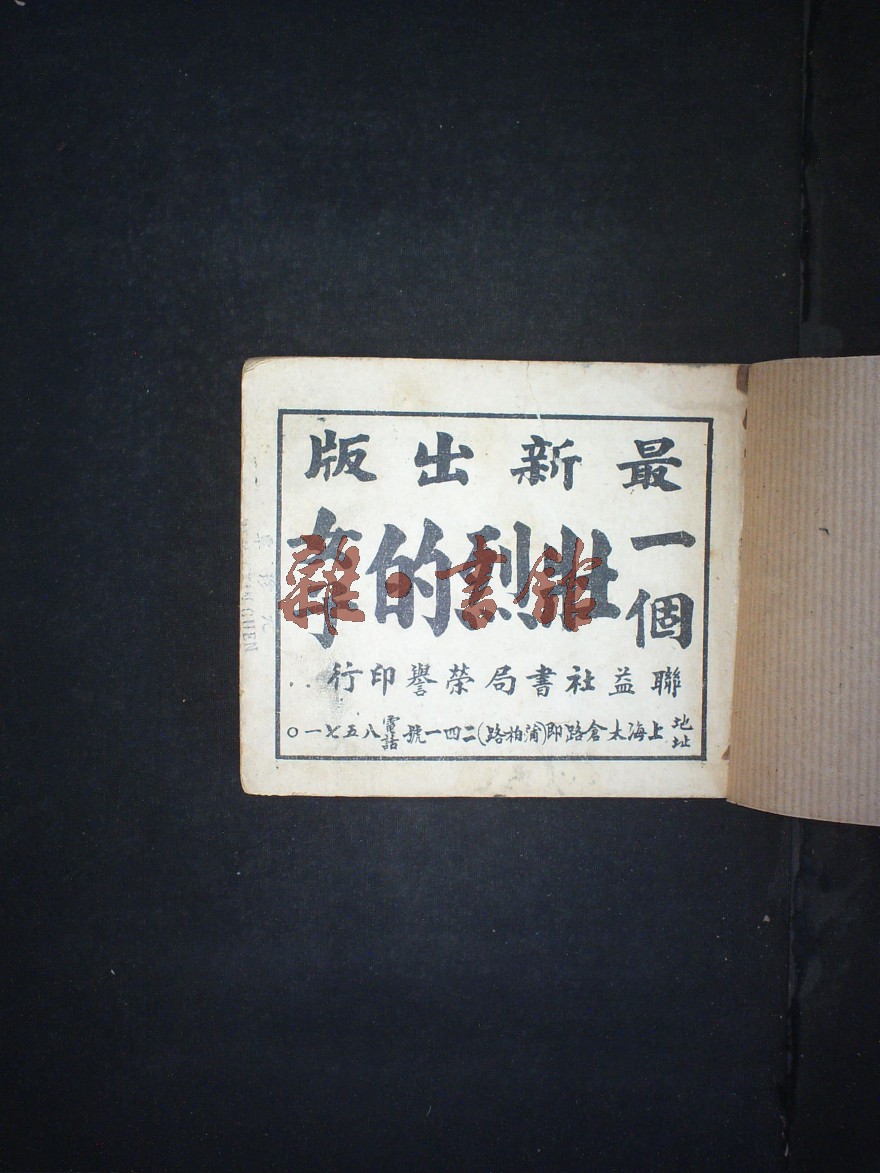 最新出版
一個壯烈的
聯益社書局榮譽印行
地址上海太倉路即(蒲柏路)二四一號電話八五七一〇
雜·書館
CHEN